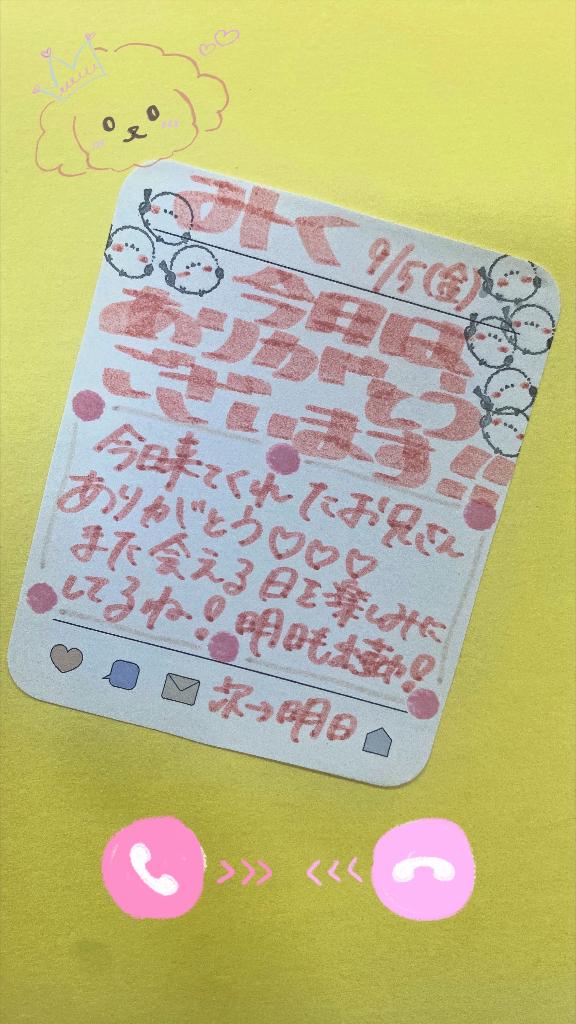 みく 9/5(金)
今日は、
ありがとう
ございます!!
今日来てくれたお兄さん
ありがとう♡♡♡
また会える日を楽しみに
してるね!明日も出勤!
次→明日